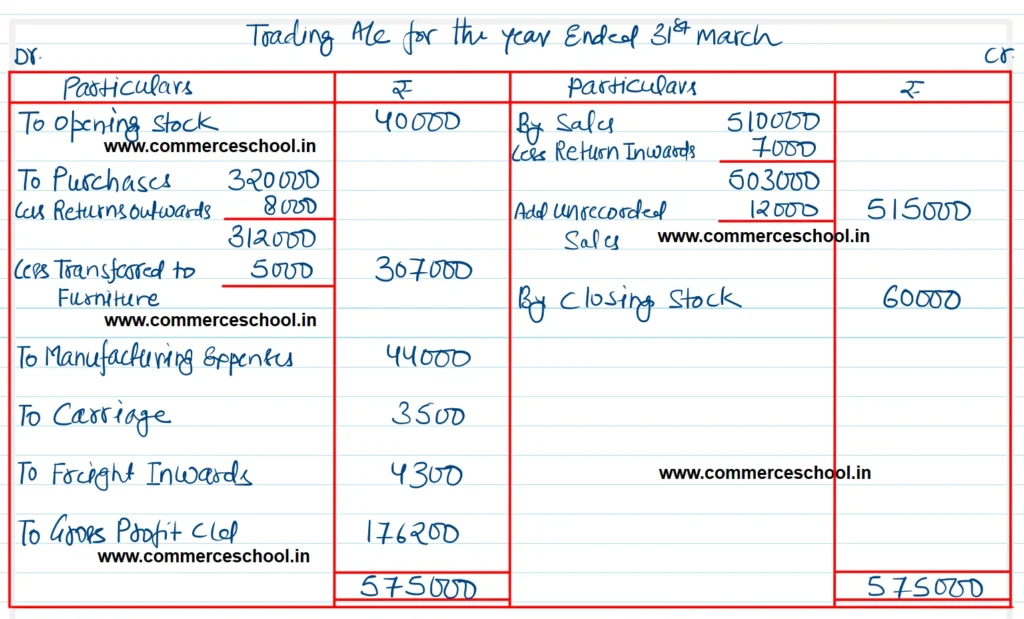 Trading A/c for the year Ended 31st March
Dr.
Cr.
Particulars ₹ Particulars ₹
To Opening Stock 40000 By Sales 510000
www.commerceschool.in
Less Return Inwards 7000
To Purchases 320000 503000
Less Returns outwards 8000 Add Unrecorded 12000 515000
312000 Sales www.commerceschool.in
Less Transferred to 5000 307000
Furniture By Closing Stock 60000
www.commerceschool.in
To Manufacturing Expenses 44000
To Carriage 3500
To Freight Inwards 4300 www.commerceschool.in
To Gross Profit C/d 176200
www.commerceschool.in
575000 575000